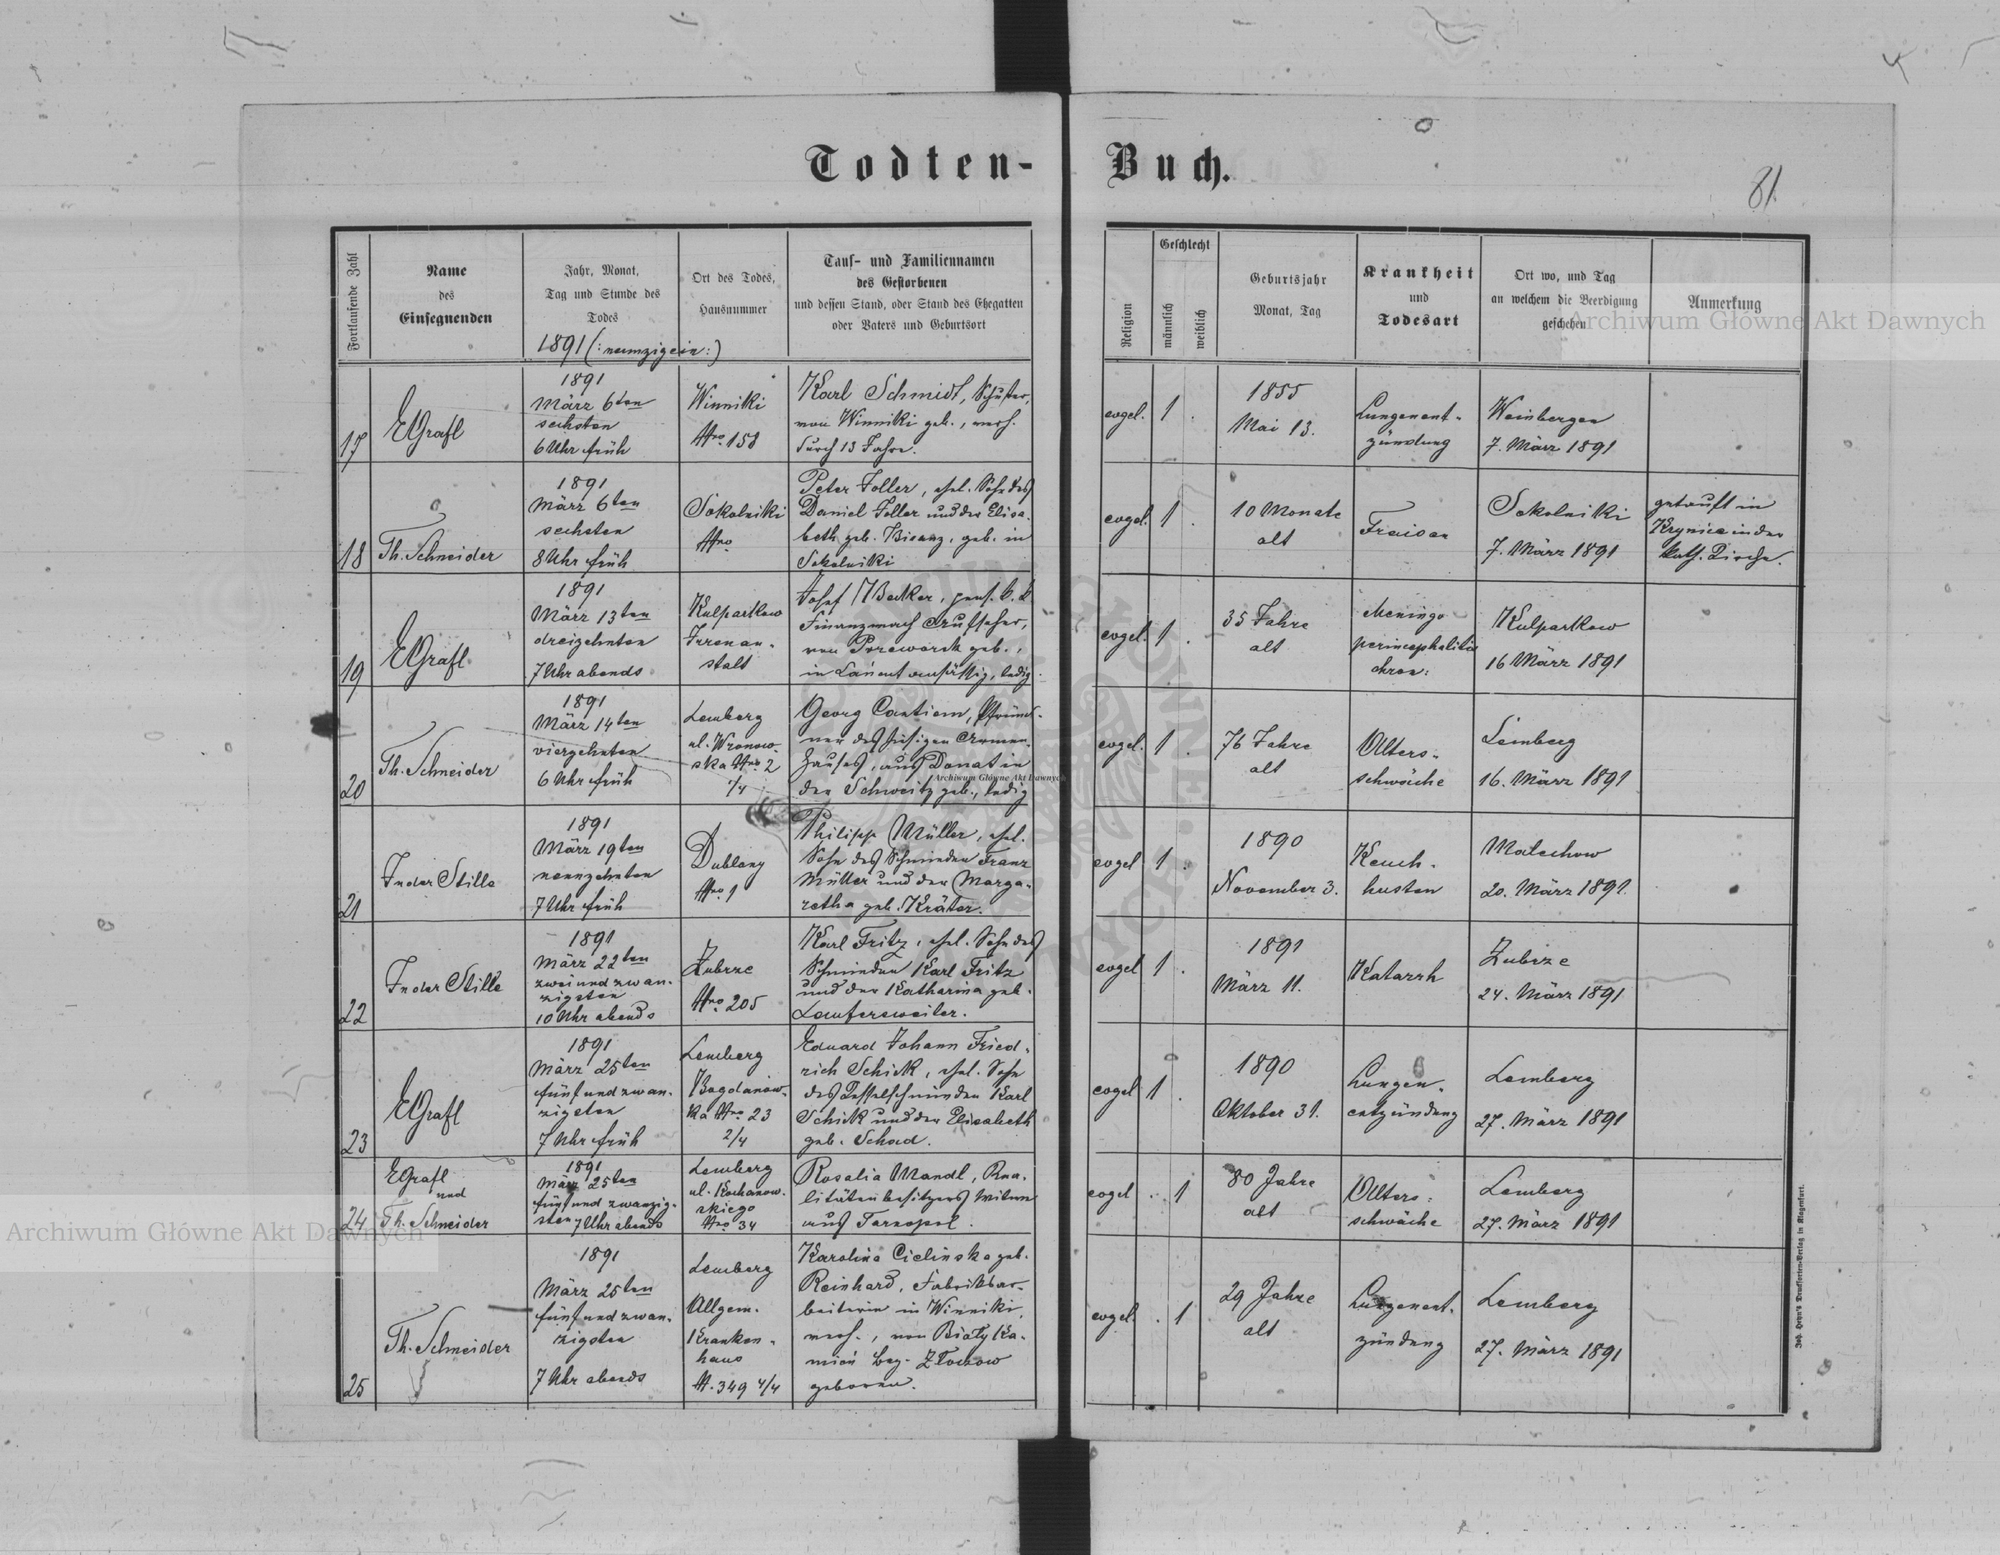 Todten-Buch.
81.
Fortlaufende Zahl
Name
des
Einsegnenden
Jahr, Monat,
Tag und Stunde des
Todes
1891 (: neunzigein :)
Ort des Todes,
Hausnummer
Tauf- und Familiennamen
des Gestorbenen
und dessen Stand, oder Stand des Ehegatten
oder Vaters und Geburtsort
Religion
Geschlecht
männlich
weiblich
Geburtsjahr
Monat, Tag
Krankheit
und
Todesart
Ort wo, und Tag
an welchem die Beerdigung
geschehen
Anmerkung
Archiwum Główne Akt Dawnych
17
EGrafl
1891
März 6ten
sechsten
6 Uhr früh
Winniki
Nro 158
Karl Schmidt, Schuster,
von Winniki geb., verh.
durch 13 Jahre.
evgel.
1
1855
Mai 13.
Lungenent-
zündung
Weinbergen
7. März 1891
18
Th. Schneider
1891
März 6ten
sechsten
8 Uhr früh
Sokolniki
Nro
Peter Foller, ehel. Sohn des
Daniel Foller und der Elisa-
beth geb. Bisanz, geb. in
Sokolniki
evgel.
1
10 Monate
alt
Fraisen
Sokolniki
7. März 1891
getauft in
Krynica in der
kath. Kirche.
19
EGrafl
1891
März 13ten
dreizehnten
7 Uhr abends
Kulparkow
Irrenan-
stalt
Josef Becker, pens. k. k.
Finanzwach Aufseher,
von Przeworsk geb.,
in Łańcut ansässig, ledig.
evgel.
1
35 Jahre
alt
Meningo
periencephalitis
chron:
Kulparkow
16 März 1891
20
Th. Schneider
1891
März 14ten
vierzehnten
6 Uhr früh
Lemberg
ul. Wronow-
ska Nro 2
1/4
Georg Cantieni, Pfründ-
ner des hiesigen Armen-
hauses, aus Donat in
der Schweitz geb., ledig
Archiwum Główne Akt Dawnych
evgel.
1
76 Jahre
alt
Alters-
schwäche
Lemberg
16. März 1891
21
In der Stille
1891
März 19ten
neunzehnten
7 Uhr früh
Dublany
Nro 1
Philipp Müller, ehel.
Sohn des Schmieden Franz
Müller und der Marga-
retha geb. Kräter.
evgel
1
1890
November 3.
Keuch-
husten
Malechow
20. März 1891.
22
In der Stille
1891
März 22ten
zwei und zwan-
zigsten
10 Uhr abends
Zubrze
Nro 205
Karl Fritz, ehel. Sohn des
Schmieden Karl Fritz
und der Katharina geb.
Laufersweiler.
evgel
1
1891
März 11.
Katarrh
Zubrze
24. März 1891
23
EGrafl
1891
März 25ten
fünf und zwan-
zigsten
7 Uhr früh
Lemberg
Bogdanow-
ka Nro 23
2/4
Eduard Johann Fried-
rich Schick, ehel. Sohn
des Kesselschmieden Karl
Schick und der Elisabeth
geb. Schad.
evgel
1
1890
Oktober 31.
Lungen-
entzündung
Lemberg
27. März 1891
24
EGrafl
und
Th. Schneider
1891
März 25ten
fünf und zwanzig-
sten 7 Uhr abends
Lemberg
ul. Kochanow-
skiego
Nro 34
Rosalia Mandl, Rea-
litätenbesitzers Witwe
aus Tarnopol.
evgel
1
80 Jahre
alt
Alters-
schwäche
Lemberg
27. März 1891
Archiwum Główne Akt Dawnych
25
Th. Schneider
1891
März 25ten
fünf und zwan-
zigsten
7 Uhr abends
Lemberg
Allgem.
Kranken-
haus
N. 349 4/4
Karolina Cielinska geb.
Reinhard, Fabriksar-
beiterin in Winniki,
verh., von Biały Ka-
mień Bez. Złoczow
geboren.
evgel.
1
29 Jahre
alt
Lungenent-
zündung
Lemberg
27. März 1891